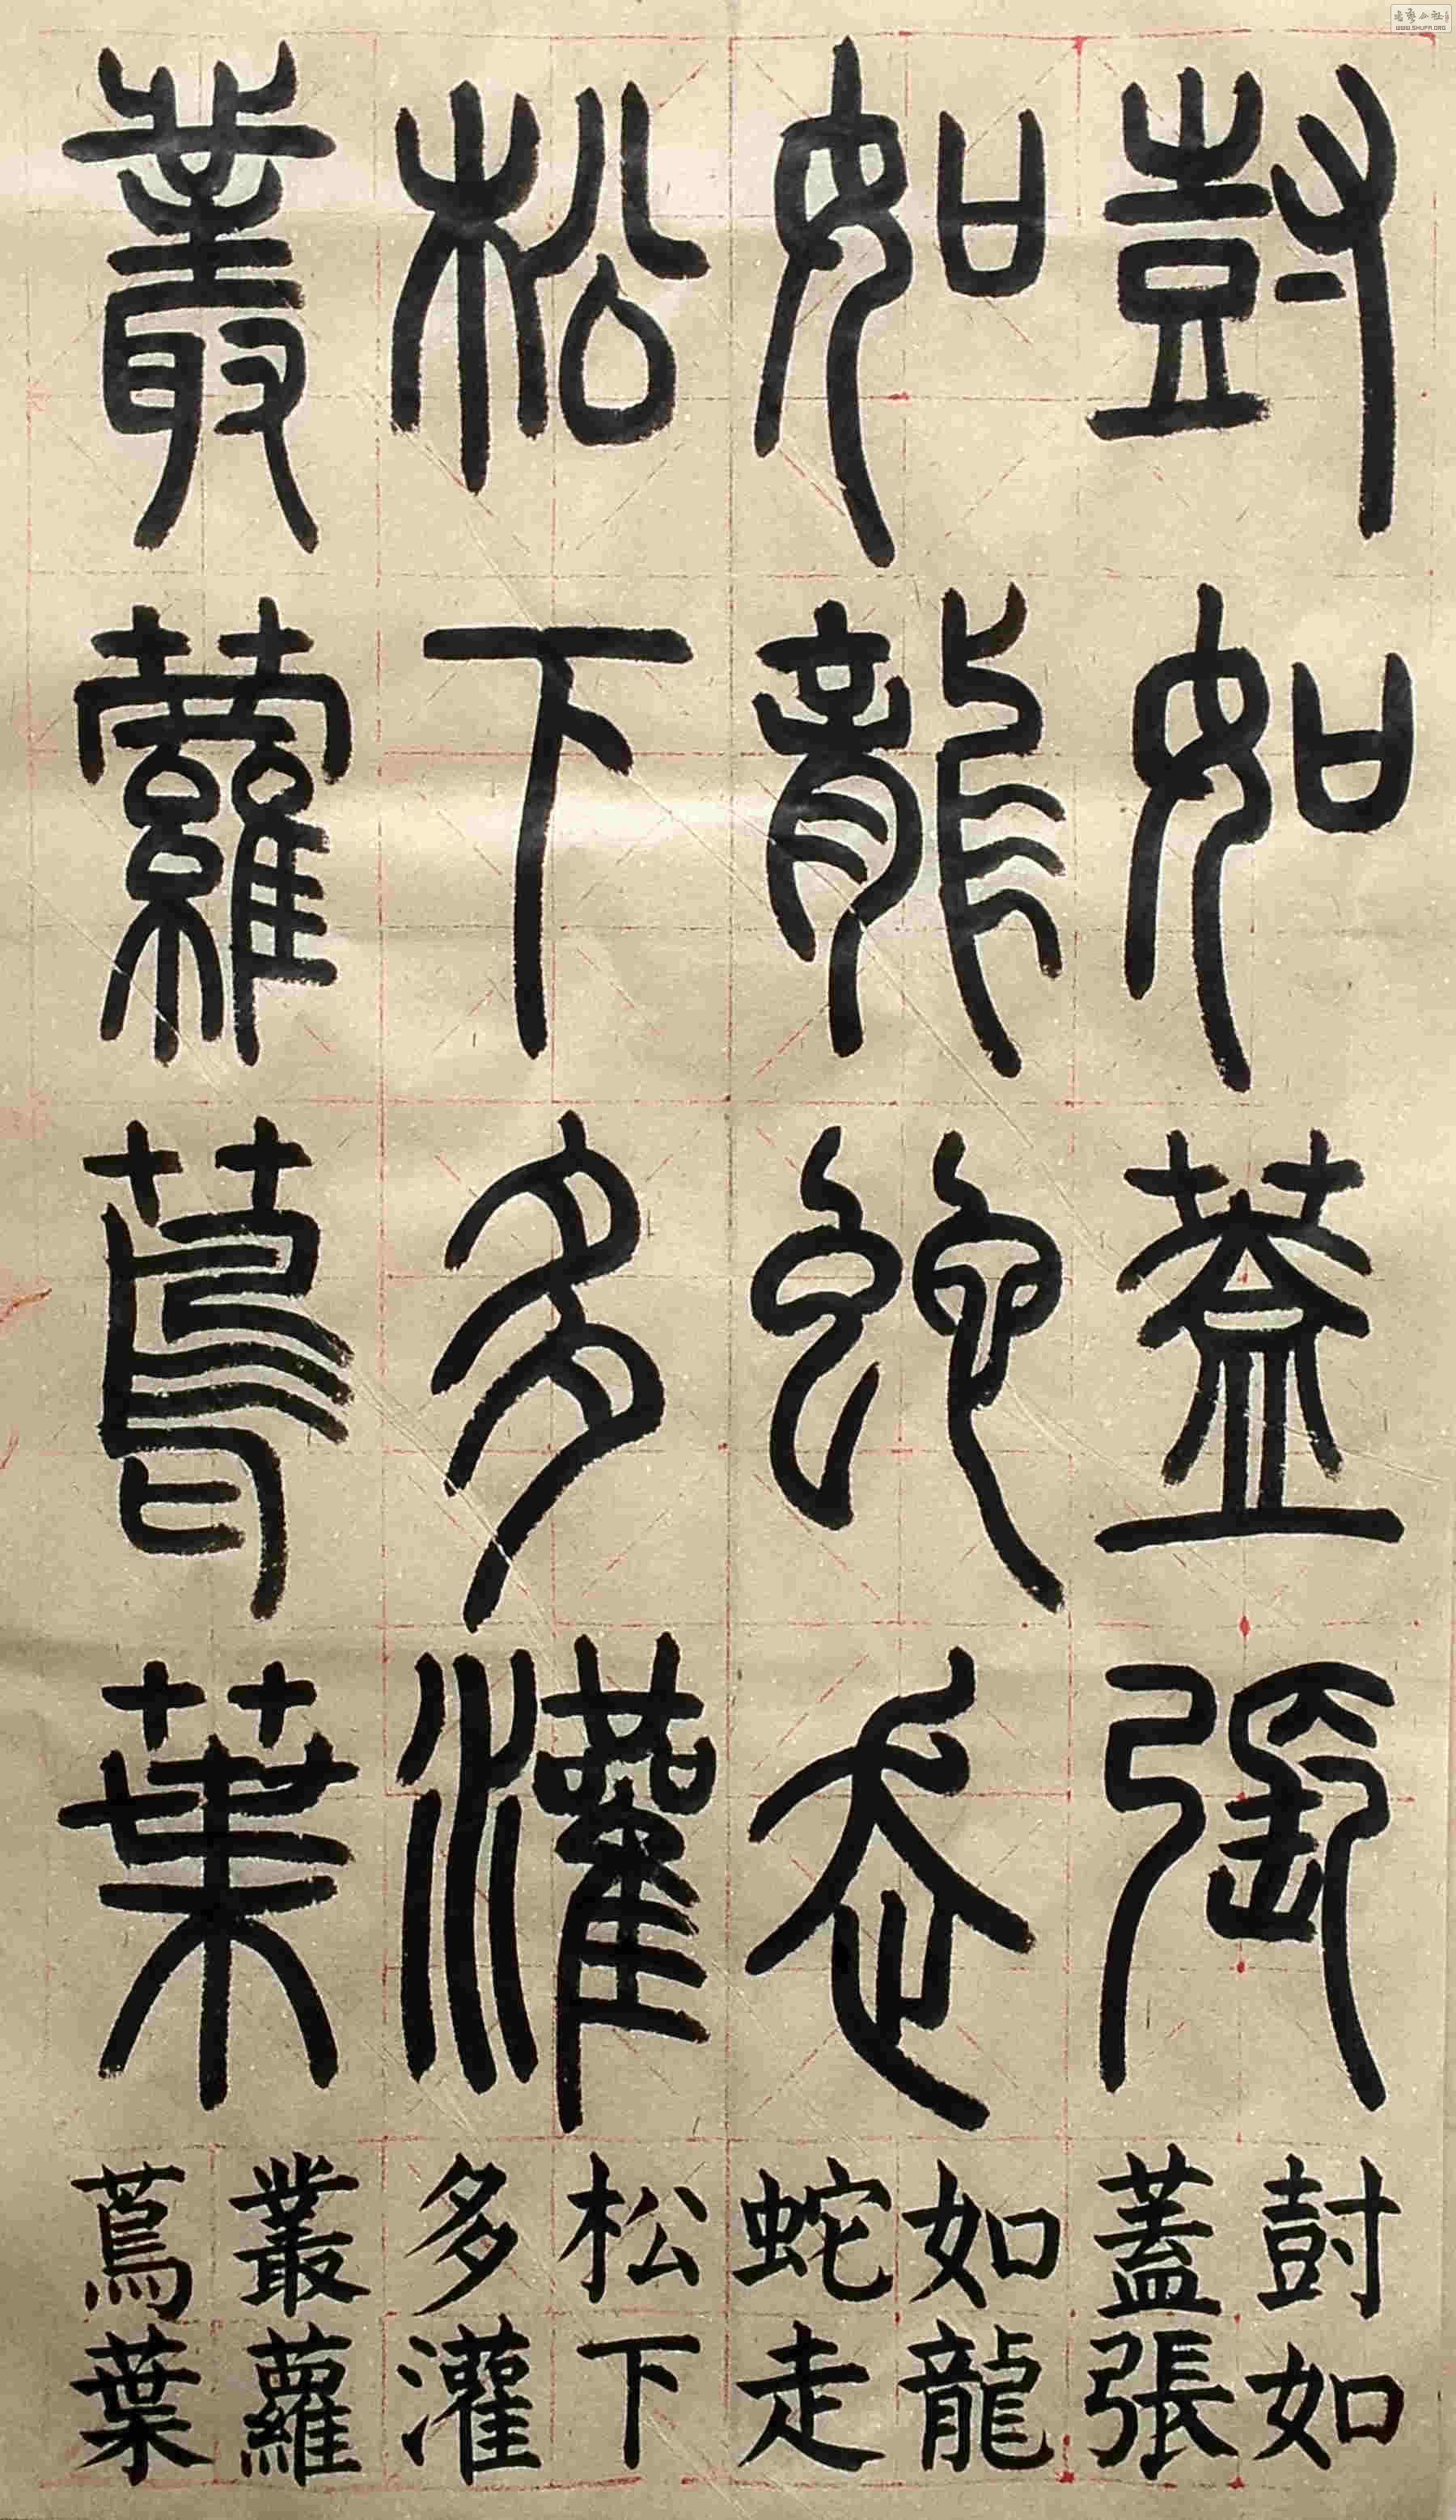 尌如蓋張
如龍蛇走
松下多灌
叢蘿蔦葉
尌如
蓋張
如龍
蛇走
松下
多灌
叢蘿
蔦葉
WWW.SHUFA.ORG